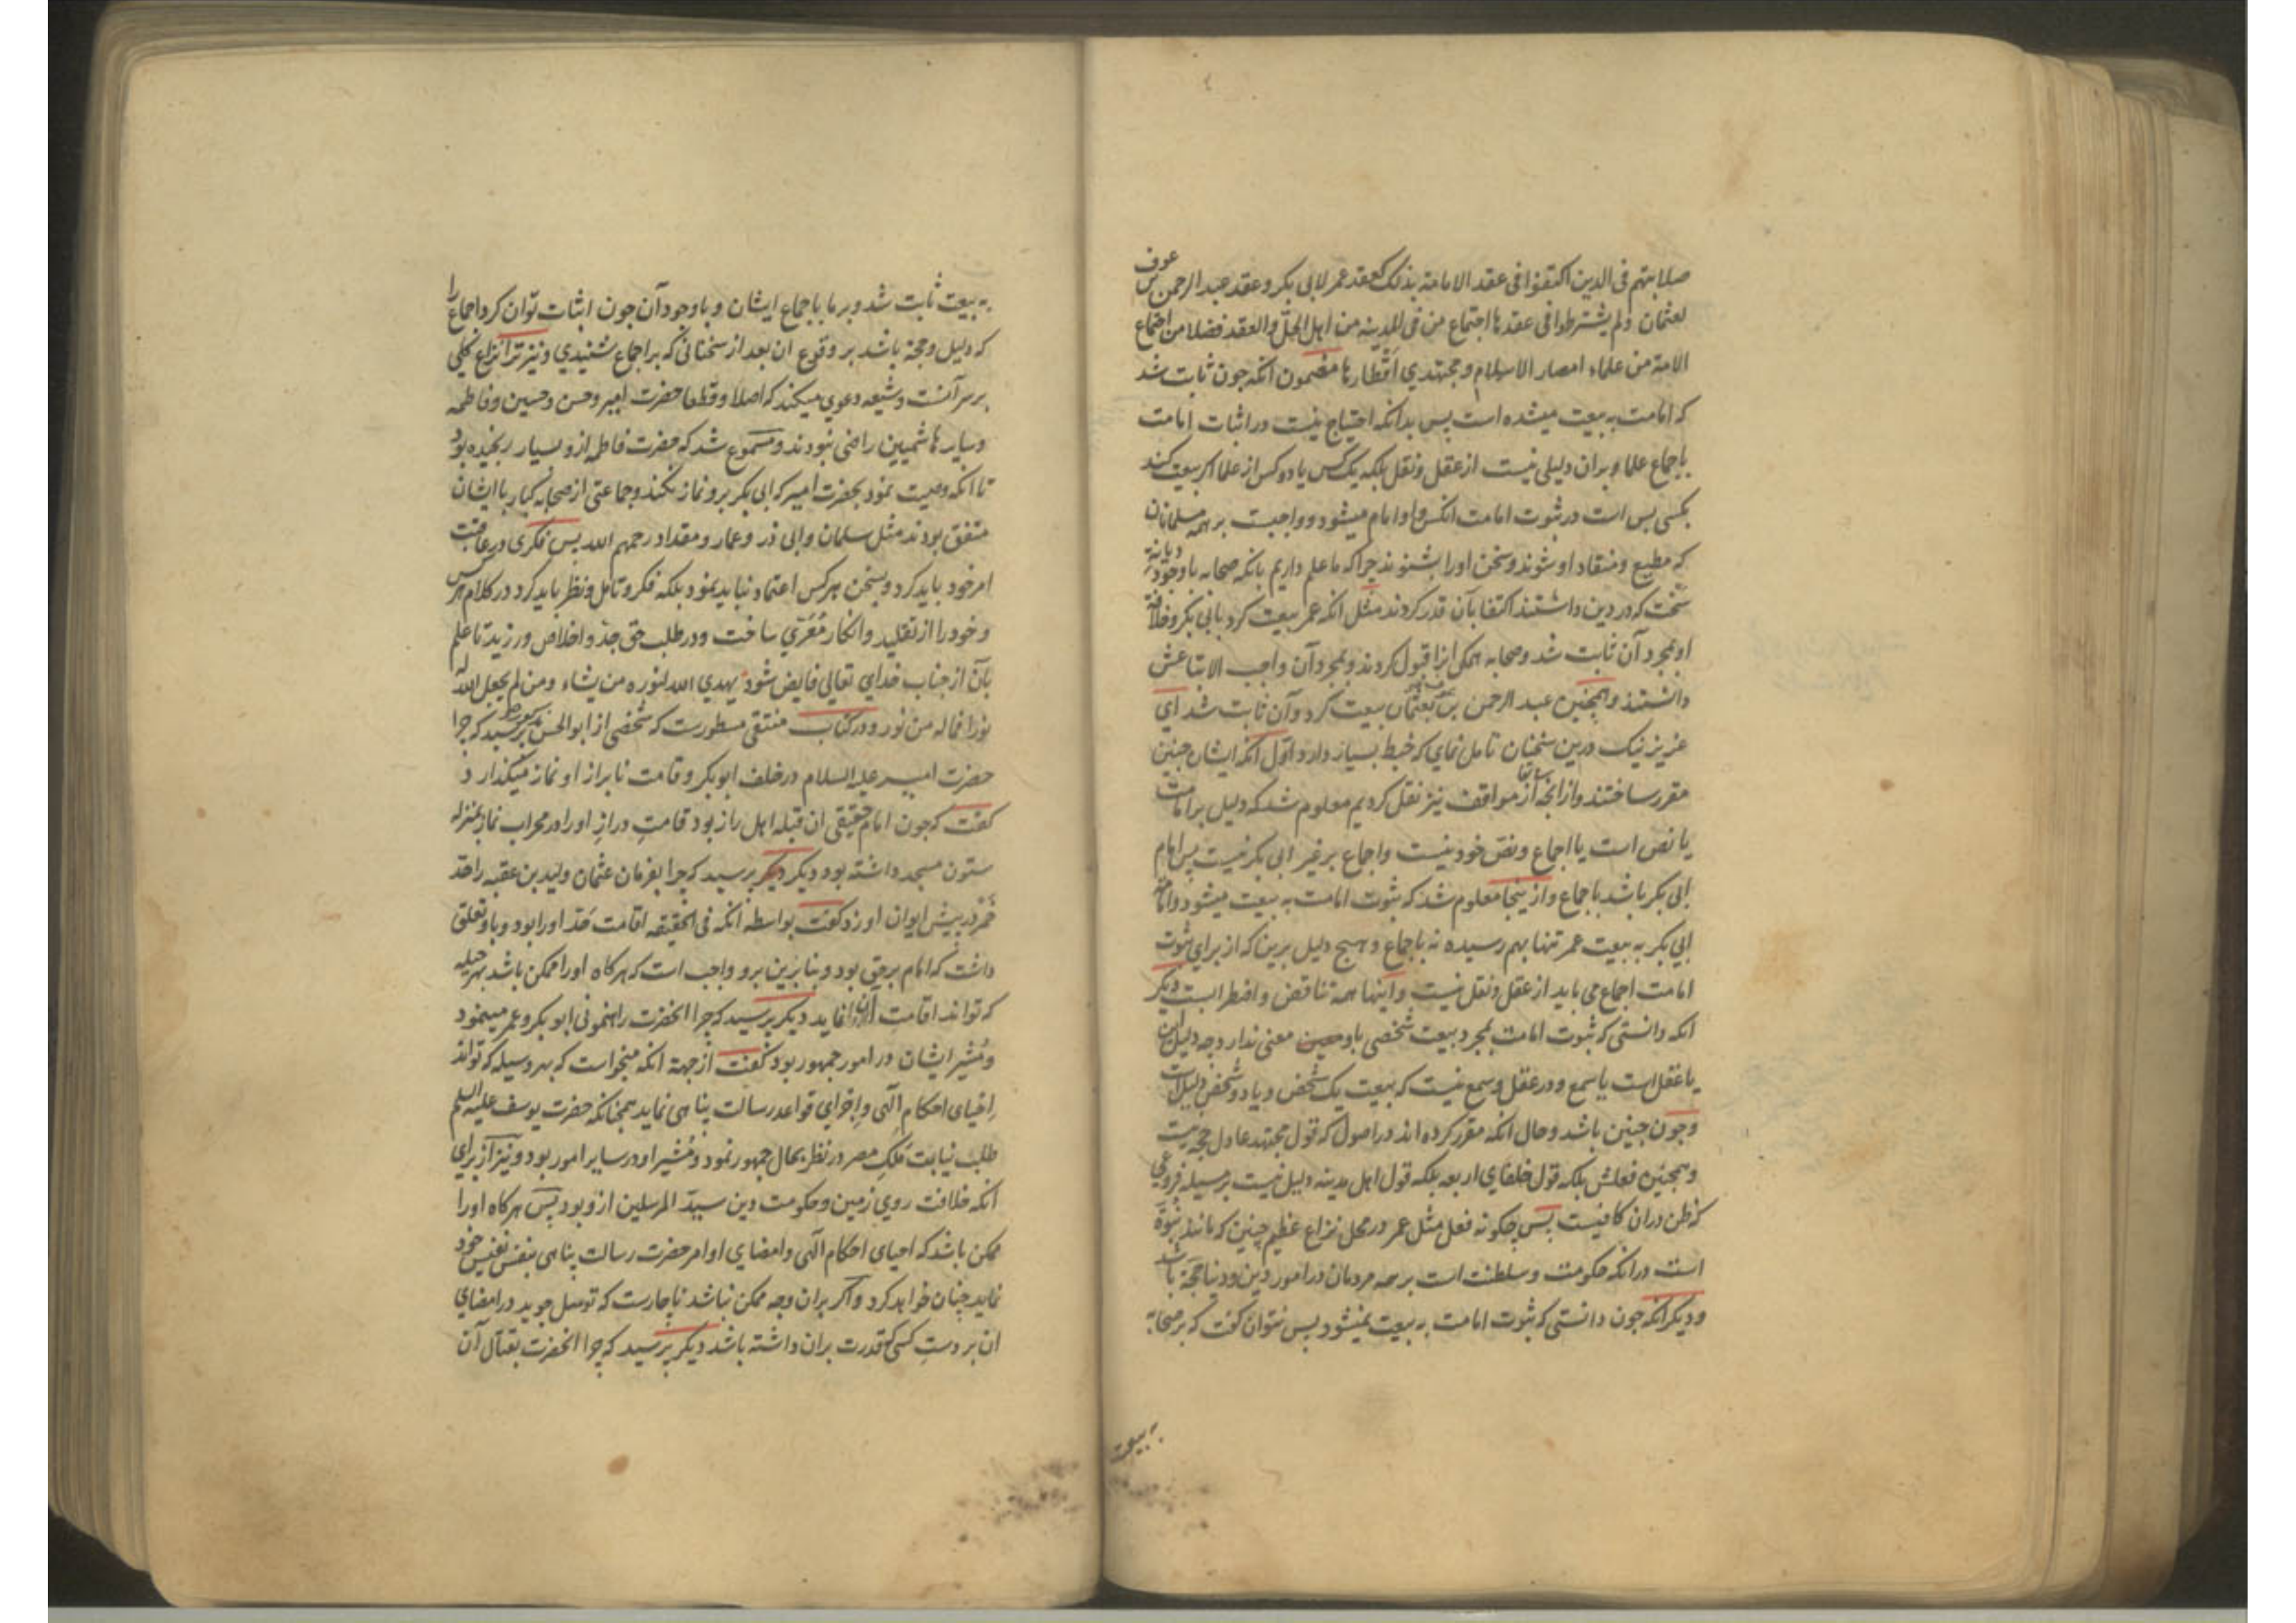 صلابتهم فی الدین اکتفوا فی عقد الامامة بذلک کعقد عمر لابی بکر و عقد عبد الرحمن بن عوف
لعثمان و لم یشترطوا فی عقدها اجتماع من فی المدینه من اهل الحلّ و العقد فضلا من اجماع
الامة من علماء امصار الاسلام و مجتهدي اقطارها مضمون انکه جون ثابت شد
که امامت به بیعت میشده است پس بدانکه احتیاج نیست در اثبات امامت
باجماع علما و بران دلیلی نیست از عقل و نقل بلکه یک کس یا دو کس از علما اکر بیعت کنند
بکسی بس است در ثبوت امامت انکس و او امام میشود و واجبست بر همه مسلمانان
که مطیع و منقاد او شوند و سخن او را بشنوند چرا که ما علم داریم بانکه صحابه با وجود دیانة
سخت که در دین داشتند اکتفا بآن قدر کردند مثل انکه عمر بیعت کرد بابی بکر و خلافة
او بمجرد آن ثابت شد و صحابه همکی انرا قبول کردند و بمجرد آن واجب الاتباعش
دانستند و همچنین عبد الرحمن بن عوف بعثمان بیعت کرد و آن ثابت شد اي
عزیز نیک درین سخنان تامل نماي که خبط بسیار دارد اوّل انکه ایشان جنین
مقرر ساختند و از انجه سابقا از مواقف نیز نقل کردیم معلوم شد که دلیل بر امامت
یا نص است یا اجماع و نص خود نیست و اجماع بر غیر ابی بکر نیست پس امام
ابی بکر باشد باجماع و از ینجا معلوم شد که ثبوت امامت به بیعت میشود و امامة
ابي بکر به بیعت عمر تنها بهم رسیده نه باجماع و هیج دلیل برین که از براي ثبوت
امامت اجماع می باید از عقل و نقل نیست و اینها همه تناقض و اضطرابست دیکر
انکه دانستی که ثبوت امامت بمجرد بیعت شخصی باو معنی ندارد جه دلیل این
یا عقل است یا سمع و در عقل و سمع نیست که بیعت یک شخص و یا دو شخص دلیل است
و جون جنین باشد و حال انکه مقرر کرده اند در اصول که قول مجتهد عادل حجة نیست
و همجنین فعلش بلکه قول خلفاي اربعه بلکه قول اهل مدینه دلیل نیست بر مسیله فروعی
که ظن دران کافیست بس چکونه فعل مثل عمر در محل نزاع عظیم چنین که مانند نبوة
است در انکه حکومت و سلطنت است بر همه مردمان در امور دین و دنیا حجة باشد
و دیکر انکه جون دانستی که ثبوت امامت به بیعت نمیشود بس نتوان کفت که بر صحابه
به بیعت
به بیعت ثابت شد و بر ما باجماع ایشان و با وجود آن جون اثبات توان کرد اجماع را
که دلیل و حجة باشد بر وقوع ان بعد از سخنانی که بر اجماع شنیدي و نیز ترا نزاع کلی
بر سر آنست و شیعه دعوي میکنند که اصلا و قطعا حضرت امیر و حسن و حسین و فاطمه
و سایر هاشمیین راضی نبودند و مسموع شد که حضرت فاطمه ازو بسیار رنجیده بود
تا انکه وصیت نمود بحضرت امیر که ابی بکر برو نماز نکند و جماعتی از صحابه کبار با ایشان
متفق بودند مثل سلمان و ابی ذر و عمار و مقداد رحمهم الله پس فکری در عاقبت
امر خود باید کرد و بسخن هر کس اعتماد نباید نمود بلکه فکر و تامل و نظر باید کرد در کلام هر کس
و خود را از تقلید و انکار مُعَرّي ساخت و در طلب حق جدّ و اخلاص ورزید تا علم
بآن از جناب خداي تعالی فایض شود یهدي الله لنوره من یشاء و من لم یجعل الله له
نورا فما له من نور و در کتاب منتقی مسطورست که شخصی از ابو الحسن پرسید که چرا
حضرت امیر علیه السلام در خلف ابو بکر و قامت نابراز او نماز میکذارد
کفت که جون امام حقیقی ان قبله اهل راز بود قامتِ درازِ او را در محراب نماز بمنزله
ستون مسجد داشته بود دیکر پرسید که چرا بفرمان عثمان ولید بن عقبه را حدّ
خمر در پیش ایوان او زد کفت بواسطه انکه فی الحقیقه اقامت حَدّ او را بود و باو تعلق
داشت که امام بر حق بود و بنا برین برو واجب است که هر کاه او را ممکن باشد بهر حیله
که تواند اقامت آن نماید دیکر پرسید که چرا انحضرت راهنمونی ابو بکر و عمر مینمود
و مُشیر ایشان در امور جمهور بود کفت از جهة انکه میخواست که بهر وسیله که تواند
احیای احکام الهی و اجرای قواعد رسالت پناهی نماید همچنانکه حضرت یوسف علیه السلم
طلب نیابت مَلِکِ مصر در نظر بحال جمهور نمود و مُشیر او در سایر امور بود و نیز از براي
انکه خلافت روي زمین و حکومت دین سیّد المرسلین ازو بود پس هر کاه او را
ممکن باشد که احیای احکام الهی و امضاي اوامر حضرت رسالت پناهی بنفس نفیس خود
نماید چنان خواهد کرد و اکر بران وجه ممکن نباشد ناچارست که توسل جوید در امضاي
ان بر دستِ کسی که قدرت بران داشته باشد دیکر پرسید که چرا انحضرت بقتال آن